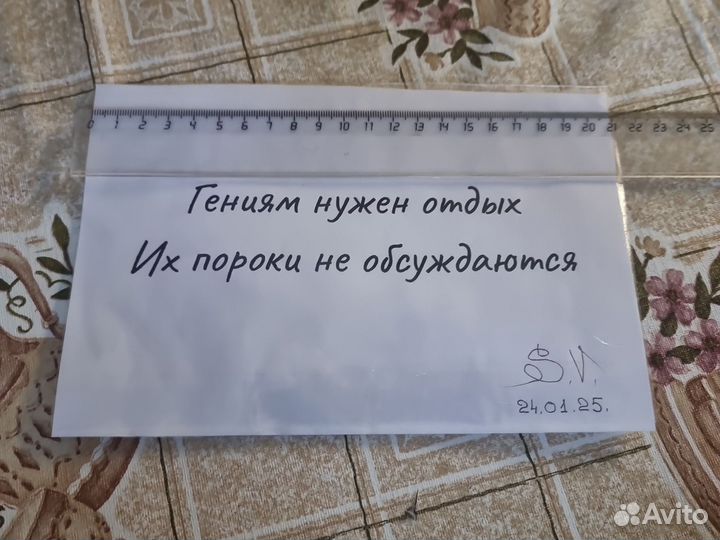 0 1 2 3 4 5 6 7 8 9 10 11 12 13 14 15 16 17 18 19 20 21 22 23 24 25
Гениям нужен отдых
Их пороки не обсуждаются
S.V.
24.01.25.
Avito